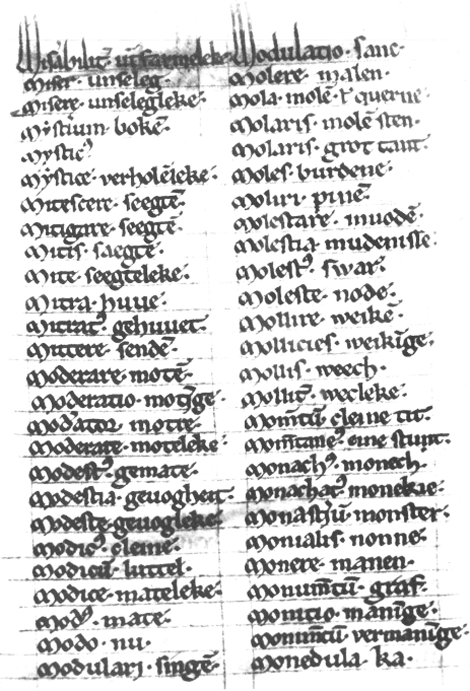 Misabilit᷒ vnsarmeleke
Miser · vnseleg
Misere · vnselegleke ·
Mẏsteriūm · bokē ·
Mẏsticꝰ
Mẏstice · verholēleke ·
Mitescere · seegtē ·
Mitigare · seegtē ·
Mitis · saegte ·
Mite · seegteleke ·
Mitra · huue ·
Mitratꝰ · gehuuet ·
Mittere · sendē ·
Moderare · motē ·
Moderatio · motīge ·
Mod'ator · motre
Moderate · moteleke ·
Modestꝰ · gemate ·
Modestia · geuogheit ·
Modeste · geuogleke ·
Modicꝰ · cleine ·
Modicū · luttel ·
Modice · mateleke ·
Modꝰ · mate ·
Modo · nu ·
Modulari · singē ·
Modulatio · sanc ·
Molere · malen ·
Mola · molē · querne ·
Molaris · molē sten ·
Molaris · grot tant ·
Moles · burdene ·
Moliri · pinē ·
Molestare · muodē ·
Molestia · mudenisse ·
Molestꝰ · swar ·
Moleste · node ·
Mollire · weikē ·
Mollicies · weikīge ·
Mollis · weech ·
Mollit᷒ · wecleke ·
Momētū · cleine tit ·
Momētaneꝰ · eine stunt ·
Monachꝰ · monech
Monachatꝰ · monekie ·
Monast'iū · monster ·
Monialis · nonne ·
Monere · manen ·
Monumētū · graf ·
Monitio · manīge ·
Monimētū · vermanīge ·
Monedula · ka ·